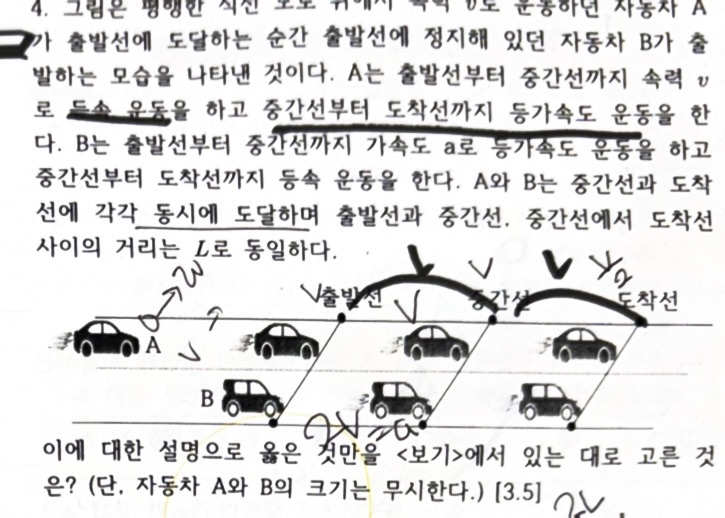 4. 그림은 평행한 직선 도로 위에서 속력 v로 운동하던 자동차 A
가 출발선에 도달하는 순간 출발선에 정지해 있던 자동차 B가 출
발하는 모습을 나타낸 것이다. A는 출발선부터 중간선까지 속력 v
로 등속 운동을 하고 중간선부터 도착선까지 등가속도 운동을 한
다. B는 출발선부터 중간선까지 가속도 a로 등가속도 운동을 하고
중간선부터 도착선까지 등속 운동을 한다. A와 B는 중간선과 도착
선에 각각 동시에 도달하며 출발선과 중간선, 중간선에서 도착선
사이의 거리는 L로 동일하다.
출발선 중간선 도착선
A
B
2V
이에 대한 설명으로 옳은 것만을 <보기>에서 있는 대로 고른 것
은? (단, 자동차 A와 B의 크기는 무시한다.) [3.5]
2V